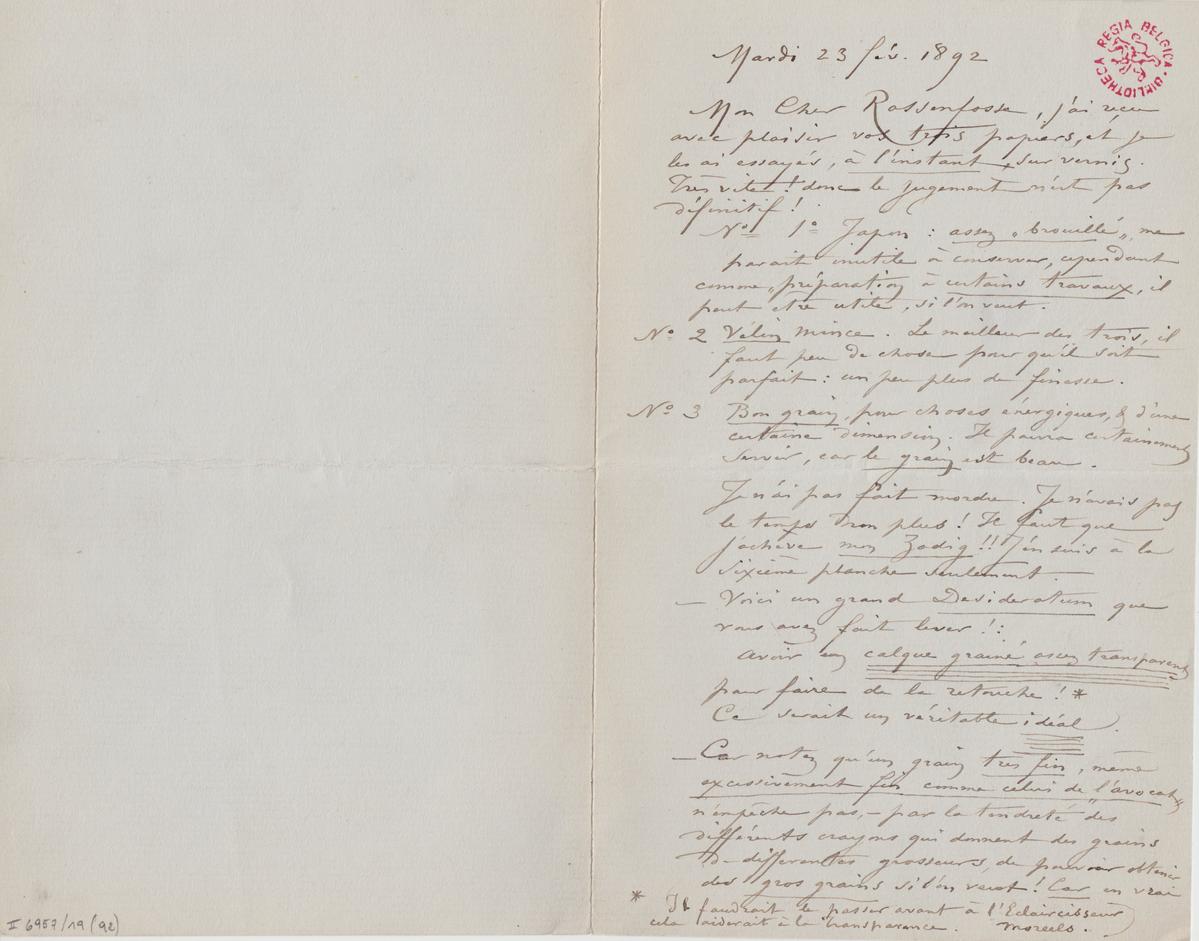 Mardi 23 fév. 1892
Mon Cher Rassenfosse, j'ai reçu
avec plaisir vos trois papiers, et je
les ai essayés, à l'instant, sur vernis.
Très vite! donc le jugement n'est pas
définitif!
Nº 1º Japon : assez „brouillé„ me
parait inutile à conserver, cependant
comme „préparation à certains travaux, il
peut etre utile, si l'on veut.
Nº 2 Vélin mince. Le meilleur des trois, il
faut peu de chose pour qu'il soit
parfait : un peu plus de finesse.
Nº 3 Bon grain, pour choses énergiques, & d'une
certaine dimension. Il pourra certainement
servir, car le grain est beau.
Je n'ai pas fait mordre. Je n'avais pas
le temps non plus! Il faut que
j'achève mon Zadig!! J'en suis à la
sixième planche seulement.
— Voici un grand Desideratum que
vous avez fait lever!:
avoir un calque grainé assez transparent
pour faire de la retouche! *
Ce serait un véritable idéal.
— Car notez qu'un grain très fin, même
excessivement fin comme celui de „l'avocat„
n'enpêche pas, – par la tendreté des
différents crayons qui donnent des grains
de differentes grosseurs, de pouvoir obtenir
des gros grains si l'on veut! Car en vrai
* Il faudrait le passer avant à l'Eclaircisseur
cela aiderait à la transparence.
REGIA BELGICA • BIBLIOTHECA
II 6957/19 (92)